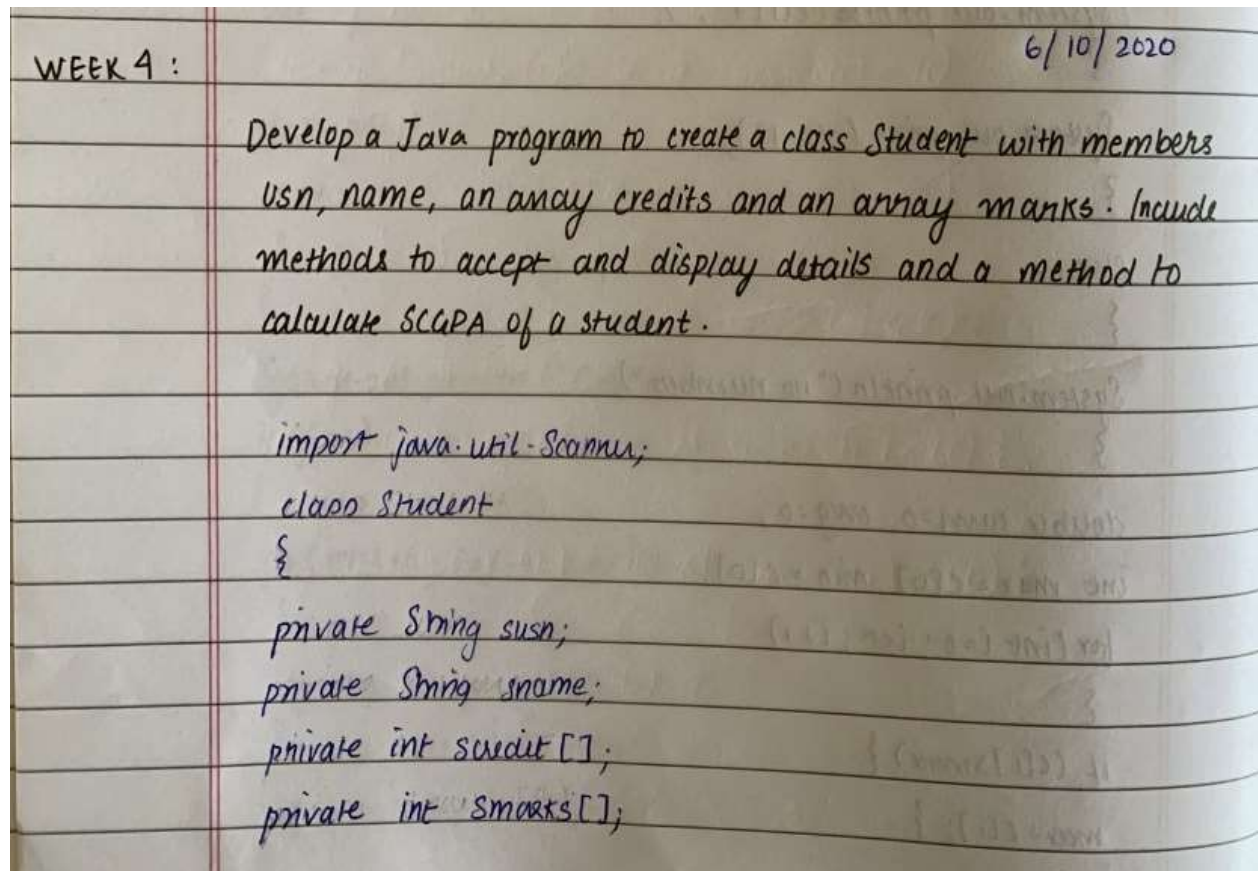 6/10/2020
WEEK 4:
Develop a Java program to create a class Student with members
usn, name, an array credits and an array marks. Include
methods to accept and display details and a method to
calculate SGPA of a student.
import java.util.Scanner;
class Student
{
private String susn;
private String sname;
private int scredit[];
private int smarks[];